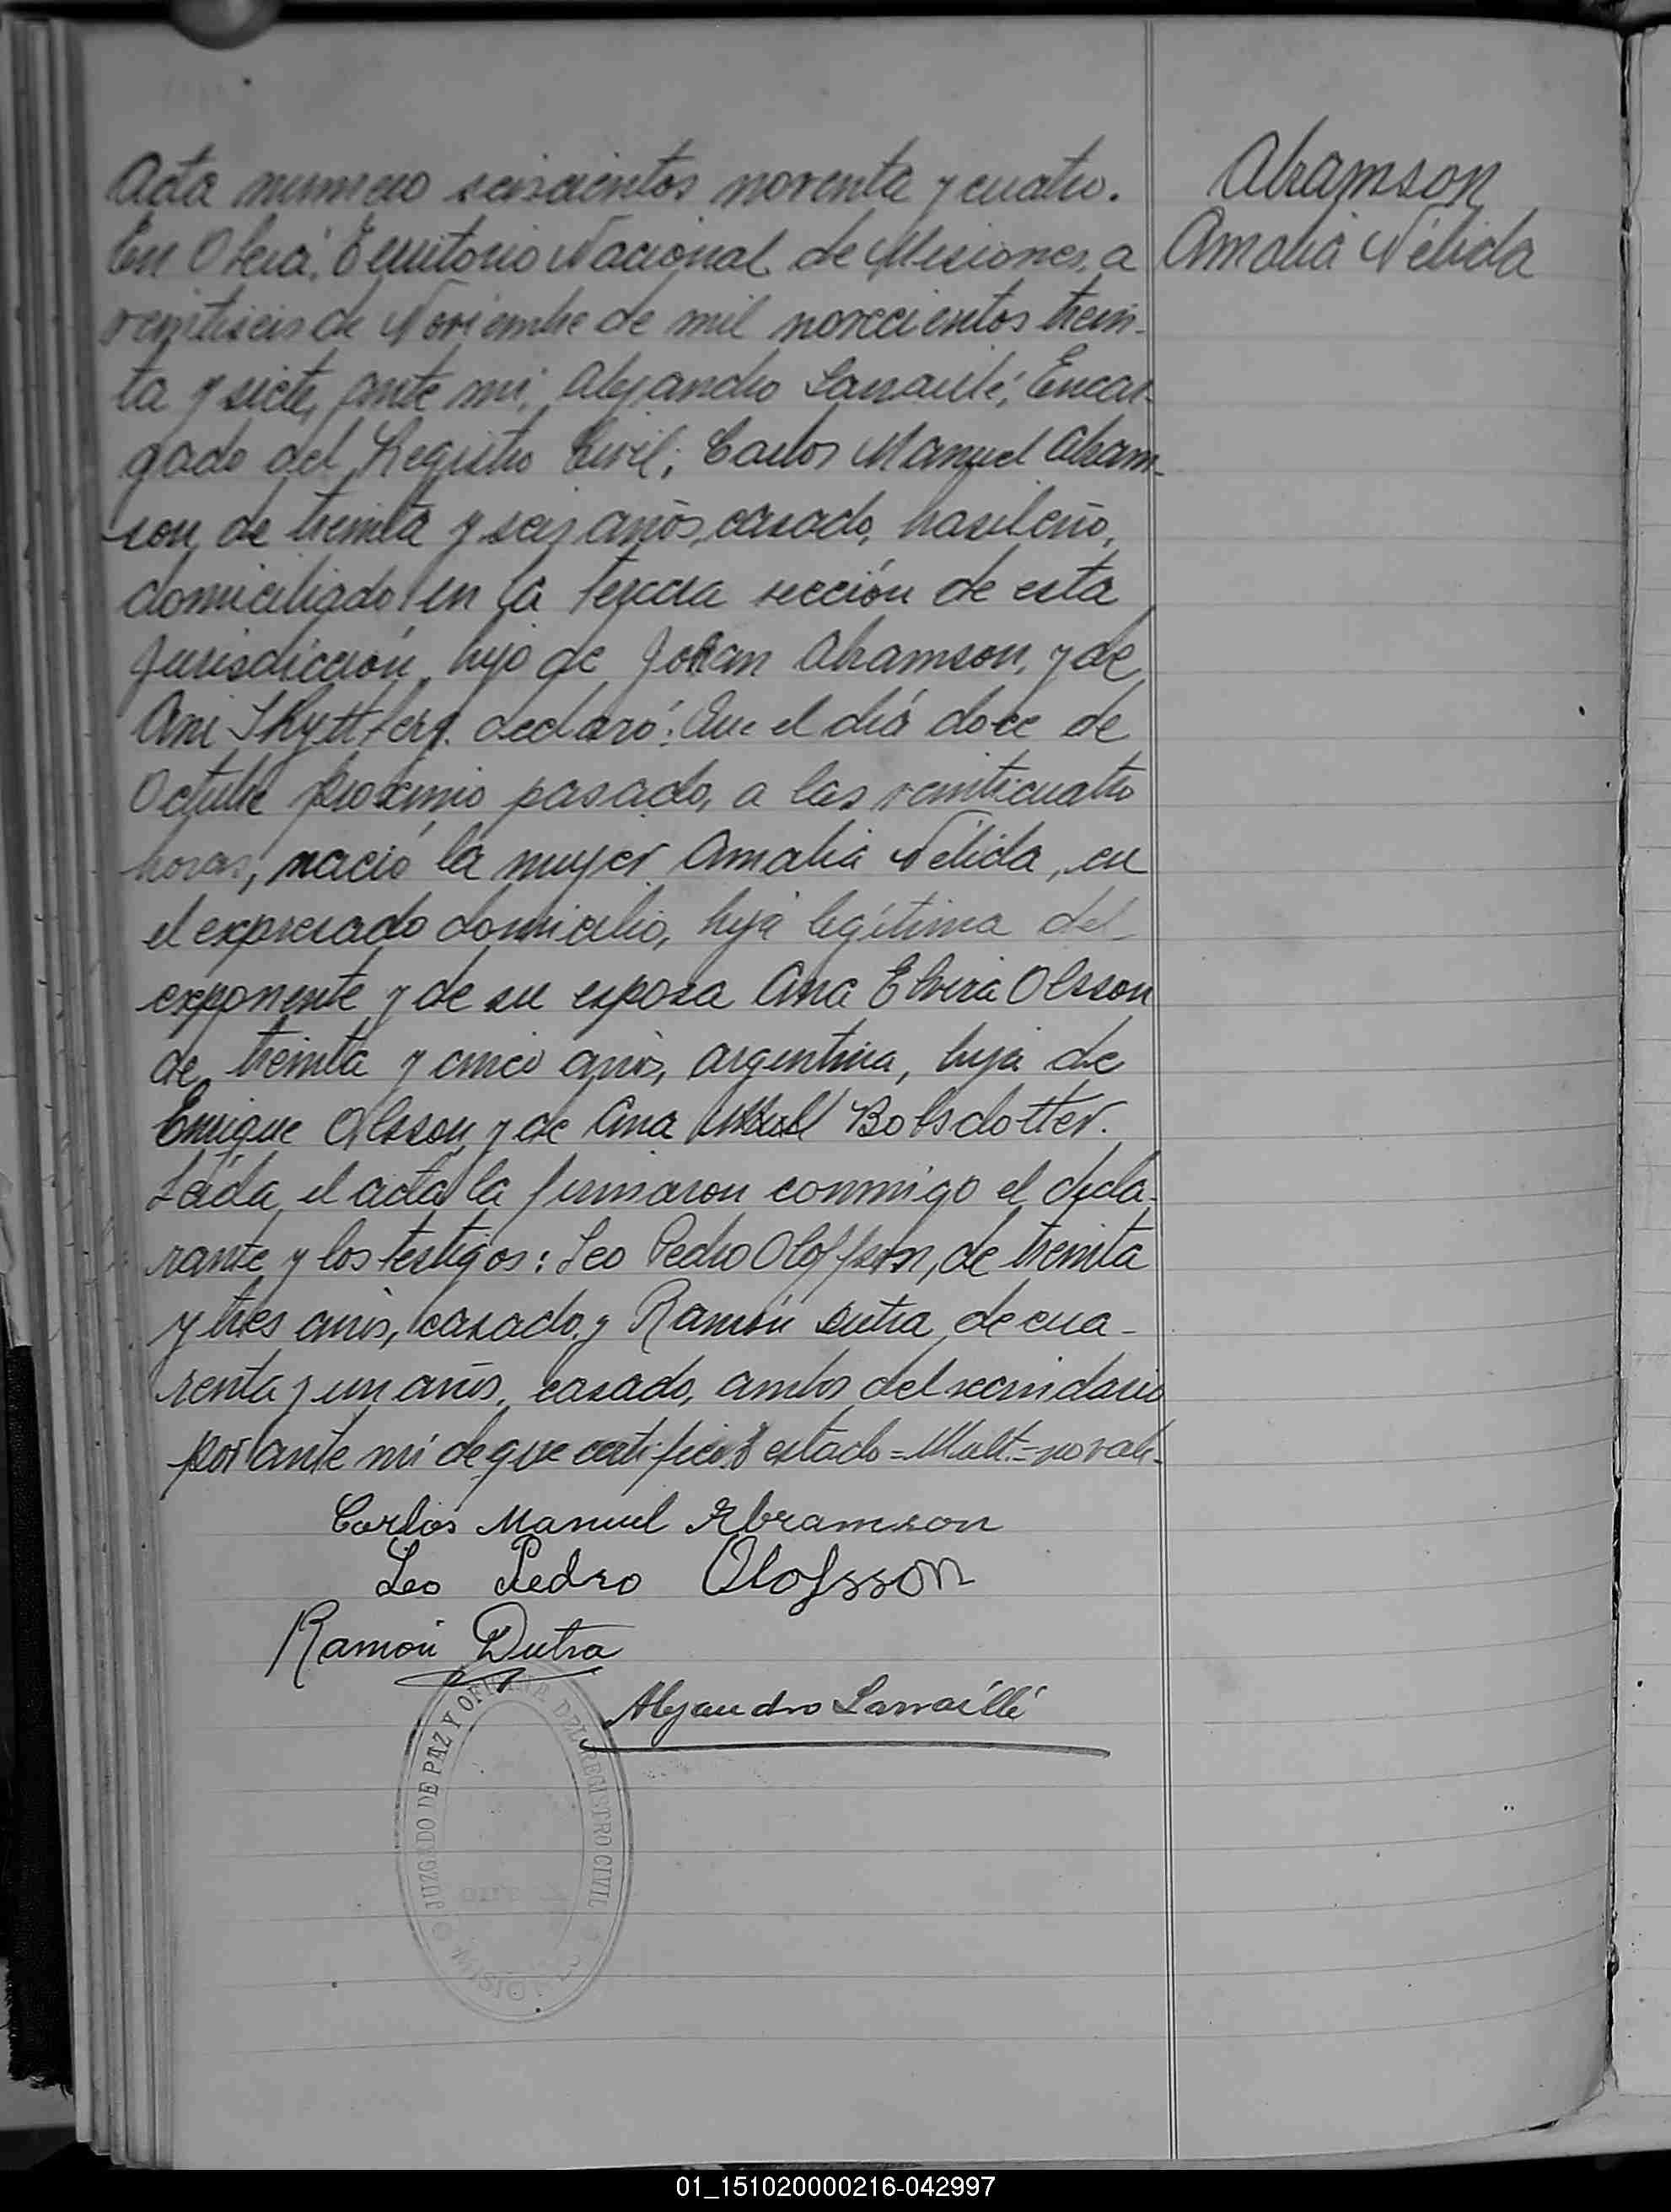 Acta numero seiscientos noventa y cuatro.
En Oberá, Territorio Nacional de Misiones, a
veintiseis de Noviembre de mil novecientos trein-
ta y siete, ante mi, Alejandro Larraillé, Encar-
gado del Registro Civil; Carlos Manuel Abram-
son, de treinta y seis años, casado, brasileño,
domiciliado en la tercera sección de esta
jurisdicción, hijo de Johan Abramson, y de
Ani declaró: Que el día doce de
Octubre proximo pasado, a las veinticuatro
horas, nació la mujer Amalia Nélida, en
el expresado domicilio, hija legítima del
exponente y de su esposa Ana Elvira Olsson
de treinta y cinco años, argentina, hija de
Enrique Olsson y de Ana Bolsdotter.
Leída el acta la firmaron conmigo el decla-
rante y los testigos: Leo Pedro Olofsson, de treinta
y tres años, casado, y Ramón Dutra, de cua-
renta y un años, casado, ambos del vecindario
por ante mí de que certifico. estado = = no vale-
Carlos Manuel Abramson
Leo Pedro Olofsson
Ramón Dutra
Alejandro Larraillé
JUZGADO DE PAZ Y OFICINA DEL REGISTRO CIVIL
MISIONES
Abramson
Amalia Nélida
01_151020000216-042997